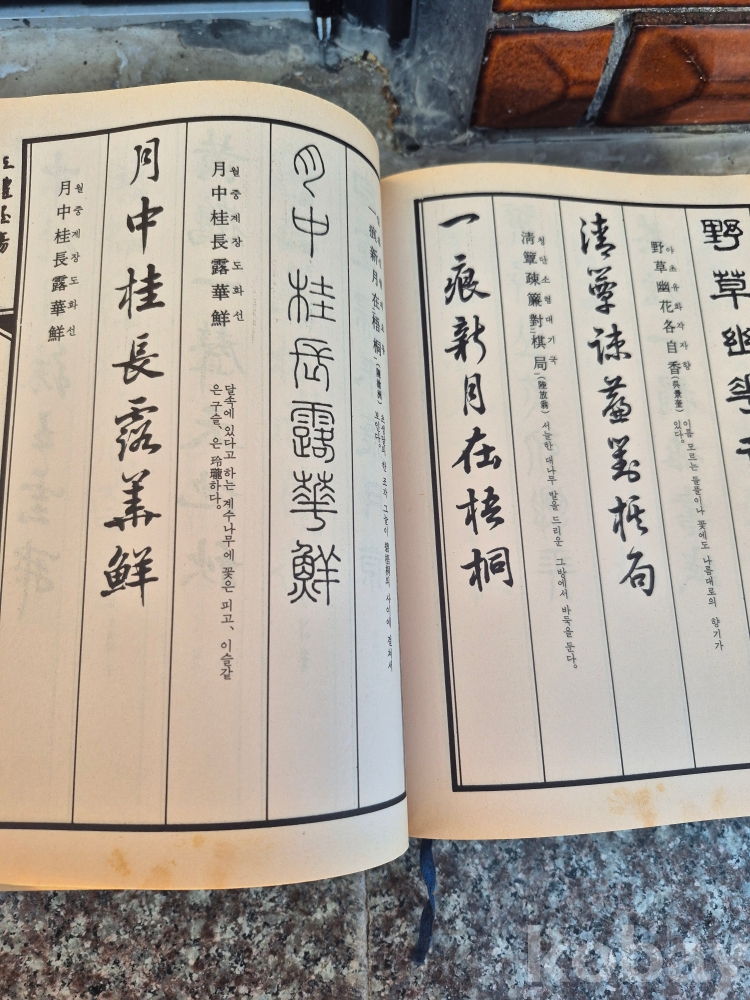 野草幽花
야초유화각자향
野草幽花各自香(吳景奎)
이름 모르는 들풀이나 꽃에도 나름대로의 향기가
있다.
清簟疎簾對棋局
청단소렴대기국
清簟疎簾對棋局(陸放翁)
서늘한 대나무 발을 드리운 그 방에서 바둑을 둔다.
一痕新月在梧桐
一痕新月在梧桐
초생달의 한 조각 그늘이 碧梧桐의 사이에 걸쳐서
보인다.
月中桂長露華鮮
월중계장도화선
月中桂長露華鮮
달속에 있다고 하는 계수나무에 꽃은 피고, 이슬같
은 구슬, 은 玲瓏하다.
月中桂長露華鮮
월중계장도화선
月中桂長露華鮮
kobay